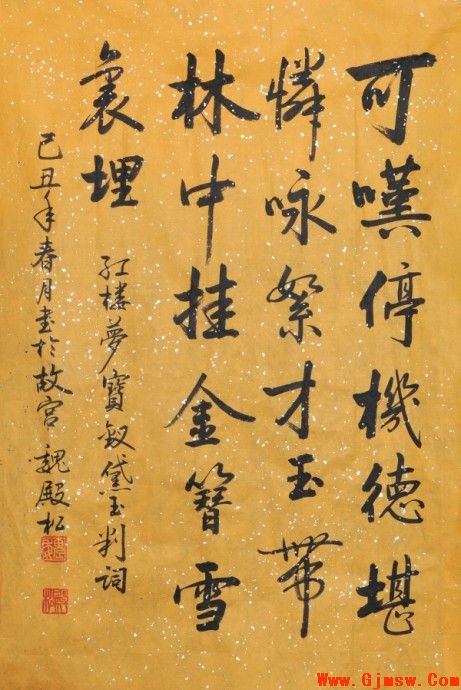 可嘆停機德堪
憐咏絮才玉帶
林中挂金簪雪
裏埋
紅樓夢寶釵黛玉判詞
己丑年春月書於故宮 魏殿松
www.Gjmsw.Com